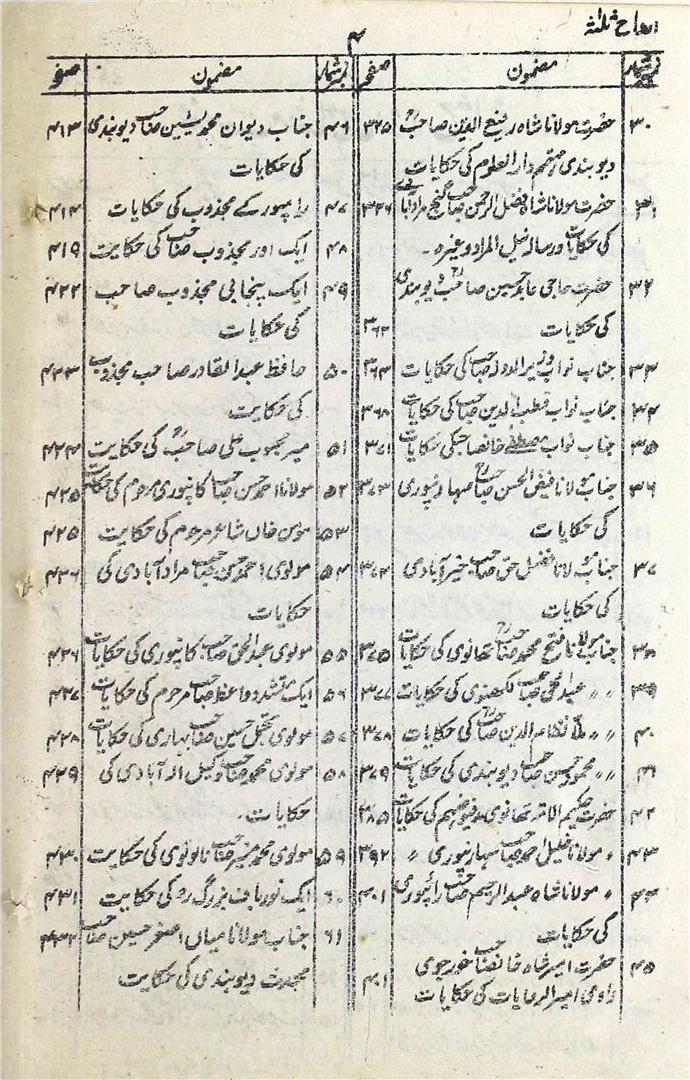 ارواح ثلٰثہ
۴
نمبر شمار مضمون صفحہ
۳۰ حضرت مولانا شاہ رفیع الدین صاحبؒ ۳۲۵
دیوبندی مہتمم دارالعلوم کی حکایات
۳۱ حضرت مولانا شاہ فضل الرحمن صاحب گنج مراد آبادی ۳۲۶
کی حکایات و رسالہ نیل المراد وغیرہ ۔
۳۲ حضرت حاجی عابد حسین صاحبؒ دیوبندی
کی حکایات ۳۶۲
۳۳ جناب نواب وزیر الدولہ صاحب کی حکایات ۳۶۳
۳۴ جناب نواب قطب الدین صاحب کی حکایات ۳۶۸
۳۵ جناب نواب مصطفےٰ خانصاحب کی حکایات ۳۷۱
۳۶ جناب مولانا فیض الحسن صاحب سہارنپوری ۳۷۳
کی حکایات
۳۷ جناب مولانا فضل حق صاحب خیر آبادی ۳۷۴
کی حکایات
۳۸ جناب مولانا فتح محمد صاحب تھانوی کی حکایات ۳۷۵
۳۹ 〃 〃 عبدالحی صاحب لکھنوی کی حکایات ۳۷۷
۴۰ 〃 〃 نظام الدین صاحب کی حکایات ۳۷۸
۴۱ 〃 〃 محمود حسن صاحب دیوبندی کی حکایات ۳۷۹
۴۲ حضرت حکیم الامۃ تھانوی کی حکایات ۳۸۵
۴۳ 〃 مولانا خلیل احمد صاحب سہارنپوری 〃 ۳۹۲
۴۴ 〃 مولانا شاہ عبدالرحیم صاحب رائپوری ۴۰۱
کی حکایات
۴۵ حضرت امیر شاہ خانصاحب خورجوی ۴۰۱
راوی امیر الروایات کی حکایات
نمبر شمار مضمون صفحہ
۴۶ جناب دیوان محمد یٰسین صاحب دیوبندی ۴۱۳
کی حکایات
۴۷ رامپور کے مجذوب کی حکایات ۴۱۴
۴۸ ایک اور مجذوب صاحب کی حکایت ۴۱۹
۴۹ ایک پنجابی مجذوب صاحب ۴۲۲
کی حکایات
۵۰ حافظ عبدالقادر صاحب مجذوب ۴۲۳
کی حکایت
۵۱ میر محبوب علی صاحبؒ کی حکایت ۴۲۴
۵۲ مولانا احمد حسن صاحب کانپوری مرحوم کی حکایت ۴۲۵
۵۳ مومن خاں شاعر مرحوم کی حکایت ۴۲۵
۵۴ مولوی احمد حسن صاحب مراد آبادی کی ۴۲۶
حکایات
۵۵ مولوی عبدالحق صاحب کانپوری کی حکایات ۴۲۶
۵۶ ایک متشدد واعظ صاحب مرحوم کی حکایات ۴۲۷
۵۷ مولوی تجمل حسین صاحب بہاری کی حکایات ۴۲۸
۵۸ مولوی محمد صاحب وکیل الہ آبادی کی ۴۲۹
حکایات ۔
۵۹ مولوی محمد منیر صاحب نانوتوی کی حکایت ۴۳۰
۶۰ ایک نورباف بزرگ رہ کی حکایت ۴۳۱
۶۱ جناب مولانا میاں اصغر حسین صاحب ۴۳۲
محدث دیوبندی کی حکایت